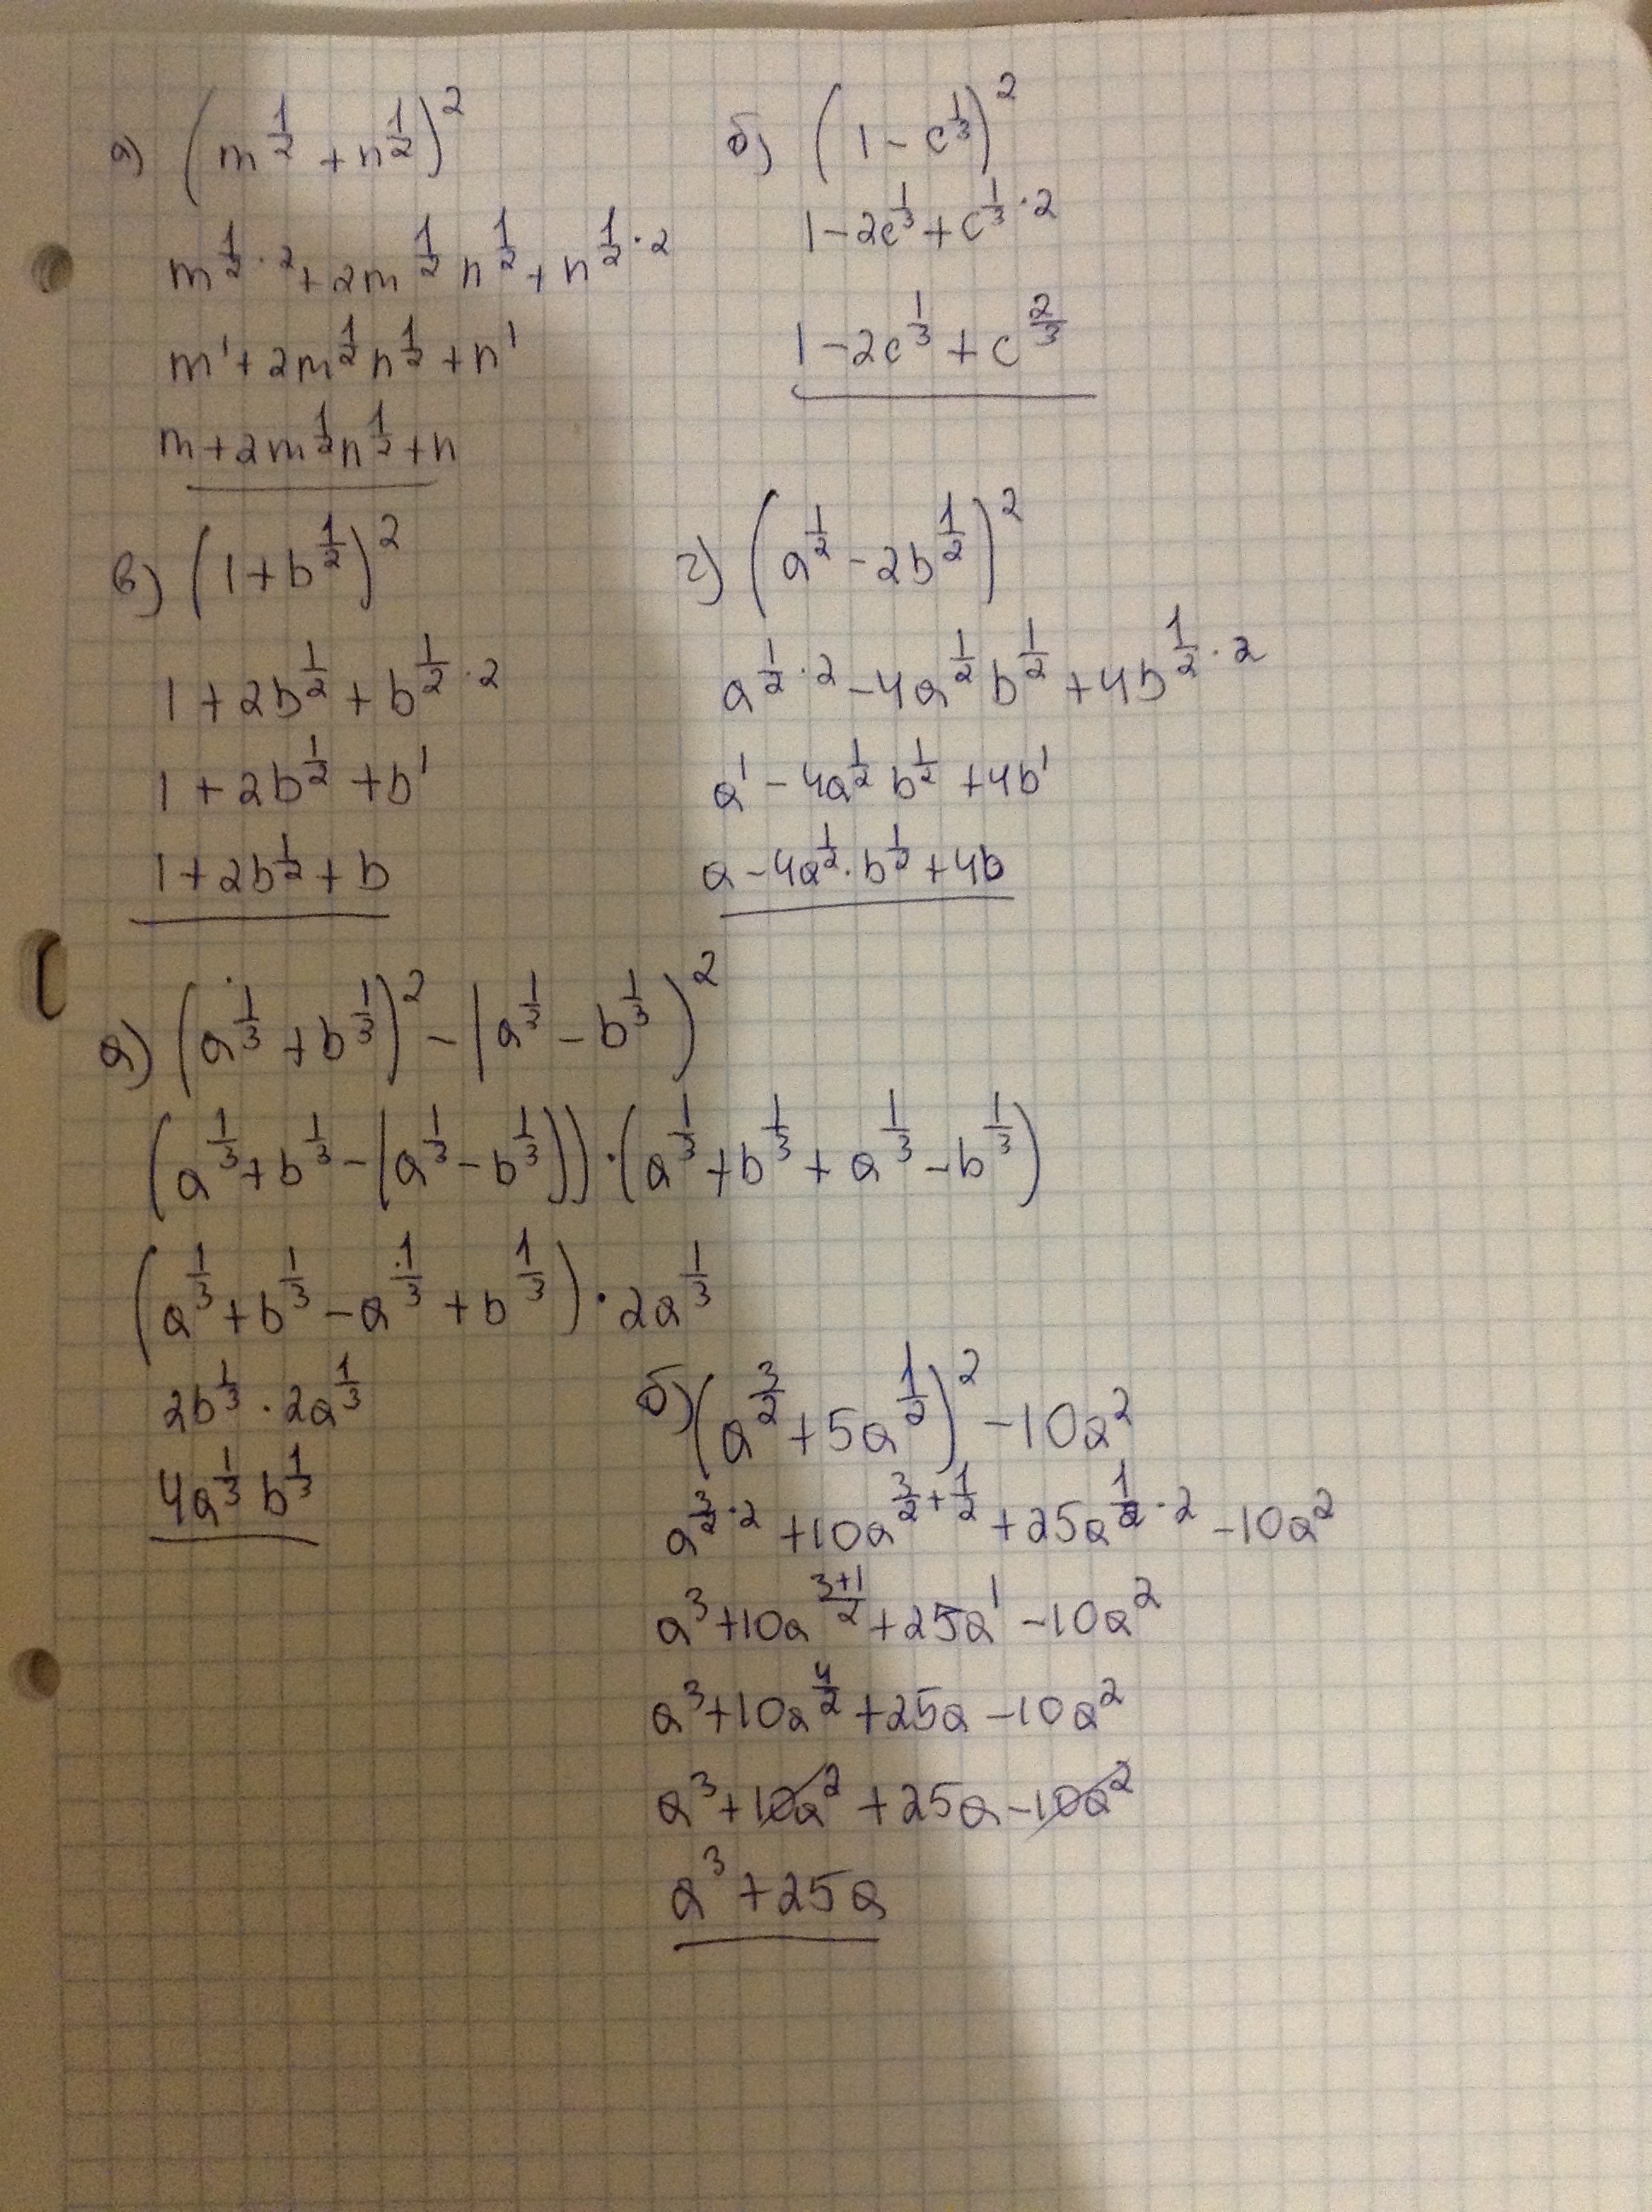 а) (m^{1/2} + n^{1/2})^2
m^{1/2 · 2} + 2m^{1/2} n^{1/2} + n^{1/2 · 2}
m^1 + 2m^{1/2} n^{1/2} + n^1
m + 2m^{1/2} n^{1/2} + n
б) (1 - c^{1/3})^2
1 - 2c^{1/3} + c^{1/3 · 2}
1 - 2c^{1/3} + c^{2/3}
в) (1 + b^{1/2})^2
1 + 2b^{1/2} + b^{1/2 · 2}
1 + 2b^{1/2} + b^1
1 + 2b^{1/2} + b
г) (a^{1/2} - 2b^{1/2})^2
a^{1/2 · 2} - 4a^{1/2} b^{1/2} + 4b^{1/2 · 2}
a^1 - 4a^{1/2} b^{1/2} + 4b^1
a - 4a^{1/2} · b^{1/2} + 4b
а) (a^{1/3} + b^{1/3})^2 - (a^{1/3} - b^{1/3})^2
(a^{1/3} + b^{1/3} - (a^{1/3} - b^{1/3})) · (a^{1/3} + b^{1/3} + a^{1/3} - b^{1/3})
(a^{1/3} + b^{1/3} - a^{1/3} + b^{1/3}) · 2a^{1/3}
2b^{1/3} · 2a^{1/3}
4a^{1/3} b^{1/3}
б) (a^{3/2} + 5a^{1/2})^2 - 10a^2
a^{3/2 · 2} + 10a^{3/2 + 1/2} + 25a^{1/2 · 2} - 10a^2
a^3 + 10a^{3+1/2} + 25a^1 - 10a^2
a^3 + 10a^{4/2} + 25a - 10a^2
a^3 + 10a^2 + 25a - 10a^2
a^3 + 25a